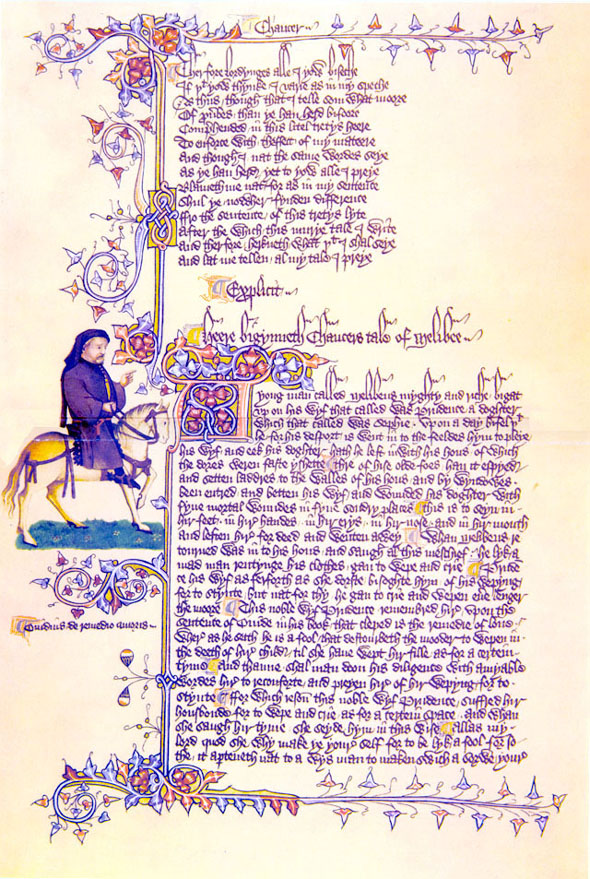 Chaucer
Therfore lordynges alle I yow biseche
If þt yow thynke I varie as in my speche
As thus, though that I telle som what moore
Of prouerbes, than ye han herd bifoore
Comprehended, in this litel tretys heere
To enforce with theffect of my mateere
And though I nat the same wordes seye
As ye han herd, yet to yow alle I preye
Blameth me nat, for as in my sentence
Shul ye nowher fynden difference
ffro the sentence of this tretys lyte
After the which this murye tale I write
And therfore herkneth what þt I shal seye
And lat me tellen al my tale I preye
Explicit
Heere bigynneth Chaucers tale of Melibee
A yong man called Melibeus myghty and riche bigat
vp on his wyf that called was Prudence a doghter
which that called was Sophie. Vpon a day bifel þt
he for his desport is went in to the feeldes hym to pleye
his wyf and eek his doghter hath he left in with his hous of which
the dores weren faste yshette Thre of hise olde foos han it espyed
and setten laddres to the walles of his hous and by wyndowes
been entred and betten his wyf and wounded his doghter with
fyue mortal woundes in fyue sondry places this is to seyn in
hir feet in hir handes in hir erys in hir nose and in hir mouth
and leften hir for deed and wenten awey Whan Melibeus re
torned was in to his hous and saugh al this meschief he lyk a
mad man rentynge his clothes gan to wepe and crie Prude
ce his wyf as ferforth as she dorste bisoghte hym of his wepyng
for to stynte but nat for thy he gan to crie and wepen euere lenger
the moore This noble wyf Prudence remembred hire vpon the
sentence of Ouide in his book that cleped is the remedie of loue
wher as he seith he is a fool that destourbeth the mooder to wepen in
the deeth of hir child, til she haue wept hir fille as for a certein
tyme and thanne shal man doon his diligence with amyable
wordes hire to reconforte and preyen hire of hir wepyng for to
stynte ffor which resoun this noble wyf Prudence suffred hir
housbonde for to wepe and crie as for a certein space and whan
she saugh hir tyme she seyde hym in this wise Allas my
lord quod she why make ye youre self for to be lyk a fool for so
the it aperteneth nat to a wys man to maken swich a sorwe youre
Ouidius de remedio amoris